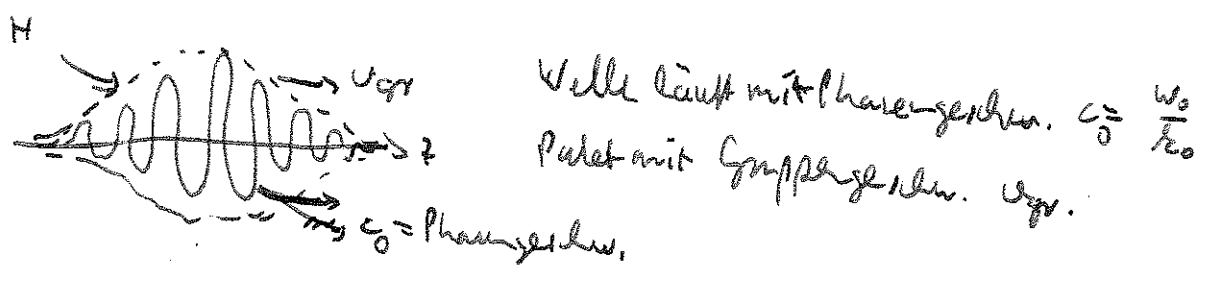 H
v_gr
z
c_0 = Phasengeschw.
Welle läuft mit Phasengeschw. c_0 = ω_0 / k_0
Paket mit Gruppengeschw. v_gr.